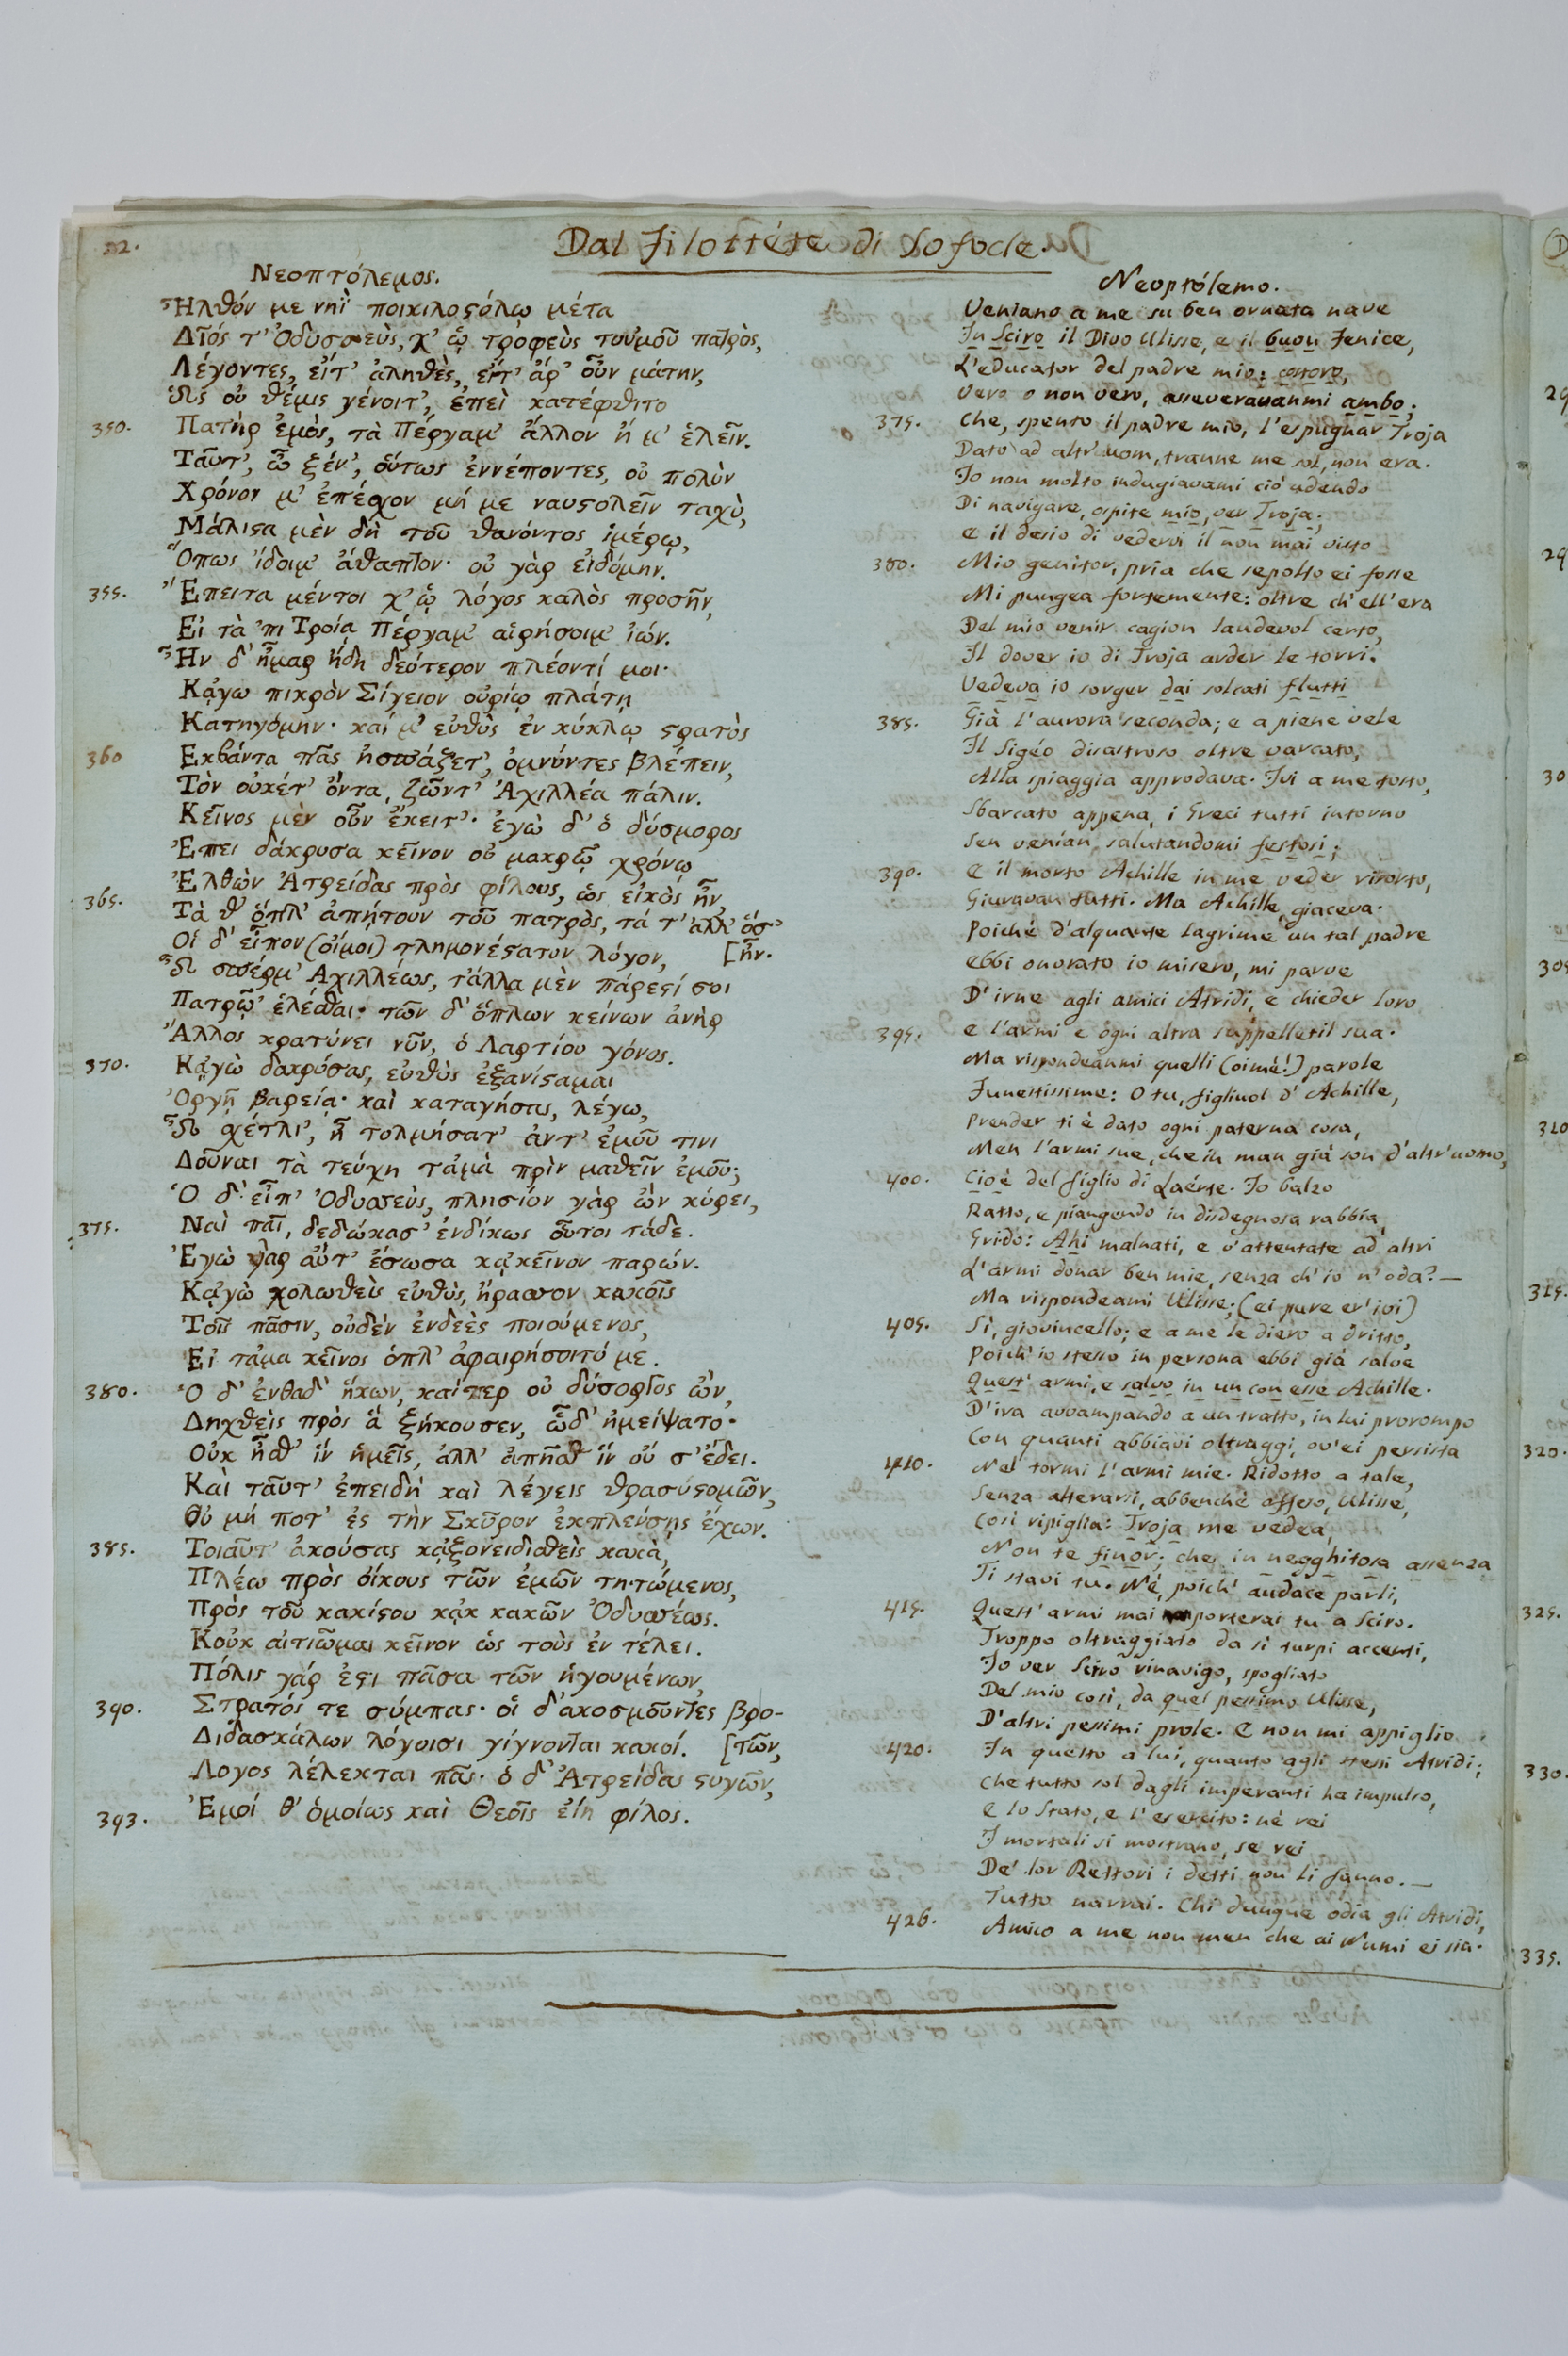 22.
Dal Filottéte di Sofocle.
Νεοπτόλεμος.
Ἦλθόν με νηῒ ποικιλοϛόλῳ μέτα
Δῖός τ' Ὀδυσσεὺς, χ' ᾧ τροφεὺς τοὐμοῦ πατρὸς,
Λέγοντες, εἴτ' ἀληθὲς, εἴτ' ἄρ' οὖν μάτην,
Ὡς οὐ θέμις γένοιτ', ἐπεὶ κατέφθιτο
350. Πατὴρ ἐμὸς, τὰ Πέργαμ' ἄλλον ἤ μ' ἑλεῖν.
Ταῦτ', ὦ ξέν', οὕτως ἐννέποντες, οὐ πολὺν
Χρόνον μ' ἐπέσχον μή με ναυϛολεῖν ταχὺ,
Μάλιϛα μὲν δὴ τοῦ θανόντος ἱμέρῳ,
Ὅπως ἴδοιμ' ἄθαπτον· οὐ γὰρ εἰδόμην.
355. Ἔπειτα μέντοι χ' ᾧ λόγος καλὸς προσῆν,
Εἰ τὰ 'πι Τροίᾳ Πέργαμ' αἱρήσοιμ' ἰών.
Ἦν δ' ἦμαρ ἤδη δεύτερον πλέοντί μοι·
Κᾀγω πικρὸν Σίγειον οὐρίῳ πλάτῃ
Κατηγόμην· καί μ' εὐθὺς ἐν κύκλῳ ϛρατὸς
360 Εκβάντα πᾶς ἠσπάζετ', ὀμνύντες βλέπειν,
Τὸν οὐκέτ' ὄντα, ζῶντ' Ἀχιλλέα πάλιν.
Κεῖνος μὲν οὖν ἔκειτ'· ἐγὼ δ' ὁ δύσμορος
Ἐπει δάκρυσα κεῖνον οὐ μακρῷ χρόνῳ
Ἐλθὼν Ἀτρείδας πρὸς φίλους, ὡς εἰκὸς ἦν,
365. Τὰ θ' ὅπλ' ἀπῄτουν τοῦ πατρὸς, τά τ' ἄλλ' ὅσ'
Οἱ δ' εἶπον (οἴμοι) τλημονέϛατον λόγον, [ἦν.
Ὦ σπέρμ' Ἀχιλλέως, τἄλλα μὲν πάρεϛί σοι
Πατρῷ' ἑλέσθαι· τῶν δ' ὅπλων κείνων ἀνὴρ
Ἄλλος κρατύνει νῦν, ὁ Λαρτίου γόνος.
370. Κᾀγὼ δακρύσας, εὐθὺς ἐξανίϛαμαι
Ὀργῇ βαρείᾳ· καὶ καταγήσας, λέγω,
Ὦ σχέτλι', ἦ τολμήσατ' ἀντ' ἐμοῦ τινι
Δοῦναι τὰ τεύχη τἀμὰ πρὶν μαθεῖν ἐμοῦ;
Ὁ δ' εἶπ' Ὀδυσσεὺς, πλησίον γὰρ ὢν κύρει,
375. Ναὶ παῖ, δεδώκασ' ἐνδίκως οὗτοι τάδε.
Ἐγὼ γὰρ αὔτ' ἔσωσα κᾀκεῖνον παρών.
Κᾀγὼ χολωθεὶς εὐθὺς, ἤρασσον κακοῖς
Τοῖς πᾶσιν, οὐδὲν ἐνδεὲς ποιούμενος,
Εἰ τἄμα κεῖνος ὅπλ' ἀφαιρήσοιτό με.
380. Ὁ δ' ἐνθαδ' ἥκων, καίπερ οὐ δύσοργος ὢν,
Δηχθεὶς πρὸς ἃ ξήκουσεν, ὧδ' ἠμείψατο·
Οὐκ ἦσθ' ἵν' ἡμεῖς, ἀλλ' ἀπῆσθ' ἵν' οὔ σ' ἔδει.
Καὶ ταῦτ' ἐπειδὴ καὶ λέγεις θρασυϛομῶν,
Οὐ μή ποτ' ἐς τὴν Σκῦρον ἐκπλεύσῃς ἔχων.
385. Τοιαῦτ' ἀκούσας κᾀξονειδισθεὶς κακὰ,
Πλέω πρὸς οἴκους τῶν ἐμῶν τητώμενος,
Πρὸς τοῦ κακίϛου κᾀκ κακῶν Ὀδυσσέως.
Κοὐκ αἰτιῶμαι κεῖνον ὡς τοὺς ἐν τέλει.
Πόλις γάρ ἐϛι πᾶσα τῶν ἡγουμένων,
390. Στρατός τε σύμπας· οἱ δ' ακοσμοῦντες βρο-
Διδασκάλων λόγοισι γίγνονται κακοί. [τῶν,
Λογος λέλεκται πᾶς· ὁ δ' Ἀτρείδας ϛυγῶν,
393. Ἐμοί θ' ὁμοίως καὶ Θεοῖς εἴη φίλος.
Neoptólemo.
Veniano a me su ben ornata nave
In Sciro il Divo Ulisse, e il buon Fenice,
L'educator del padre mio: costoro,
Vero o non vero, asseveravanmi ambo;
375. Che, spento il padre mio, l'espugnar Troja
Dato ad altr'uom, tranne me sol, non era.
Io non molto indugiavami ciò udendo
Di navigare, ospite mio, ver Troja;
E il desio di vedervi il non mai visto
380. Mio genitor, pria che sepolto ei fosse
Mi pungea fortemente: oltre ch'ell'era
Del mio venir cagion laudevol certo,
Il dover io di Troja arder le torri.
Vedeva io sorger dai solcati flutti
385. Già l'aurora seconda; e a piene vele
Il Sigéo disastroso oltre varcato,
Alla spiaggia approdava. Ivi a me tosto,
Sbarcato appena, i Greci tutti intorno
Sen venían, salutandomi festosi;
390. E il morto Achille in me veder risorto,
Giuravan tutti. Ma Achille, giaceva.
Poiché d'alquante lagrime un tal padre
Ebbi onorato io misero, mi parve
D'irne agli amici Atridi, e chieder loro
395. E l'armi e ogni altra suppelletil sua.
Ma rispondeanmi quelli (oimè!) parole
Funestissime: O tu, figliuol d'Achille,
Prender ti è dato ogni paterna cosa,
Men l'armi sue, che in man già son d'altr'uomo,
400. Cioè del figlio di Laérte. Io balzo
Ratto, e piangendo in disdegnosa rabbia
Grido: Ahi malnati, e v'attentate ad altri
L'armi donar ben mie, senza ch'io n'oda? —
Ma rispondeami Ulisse; (ei pure er' ivi)
405. Sì, giovincello; e a me le diero a dritto,
Poich'io stesso in persona ebbi già salve
Quest'armi, e salvo in un con esse Achille.
D'ira avvampando a un tratto, in lui prorompo
Con quanti abbiavi oltraggi, ov'ei persista
410. Nel tormi l'armi mie. Ridotto a tale,
Senza alterarsi, abbenchè offeso, Ulisse,
Così ripiglia: Troja me vedea,
Non te finor; che in neghittosa assenza
Ti stavi tu. Nè, poich' audace parli,
415. Quest'armi mai porterai tu a Sciro.
Troppo oltraggiato da sì turpi accenti,
Io ver Sciro rinavigo, spogliato
Del mio così, da quel pessimo Ulisse,
D'altri pessimi prole. E non mi appiglio
420. In questo a lui, quanto agli stessi Atridi;
Che tutto sol dagli imperanti ha impulso,
E lo Stato, e l'esercito: nè rei
I mortali si mostrano, se rei
De' lor Rettori i detti non li fanno. —
Tutto narrai. Chi dunque odia gli Atridi,
426. Amico a me non men che ai Numi ei sia.
29
29
30
305
310
315.
320.
325.
330.
335.